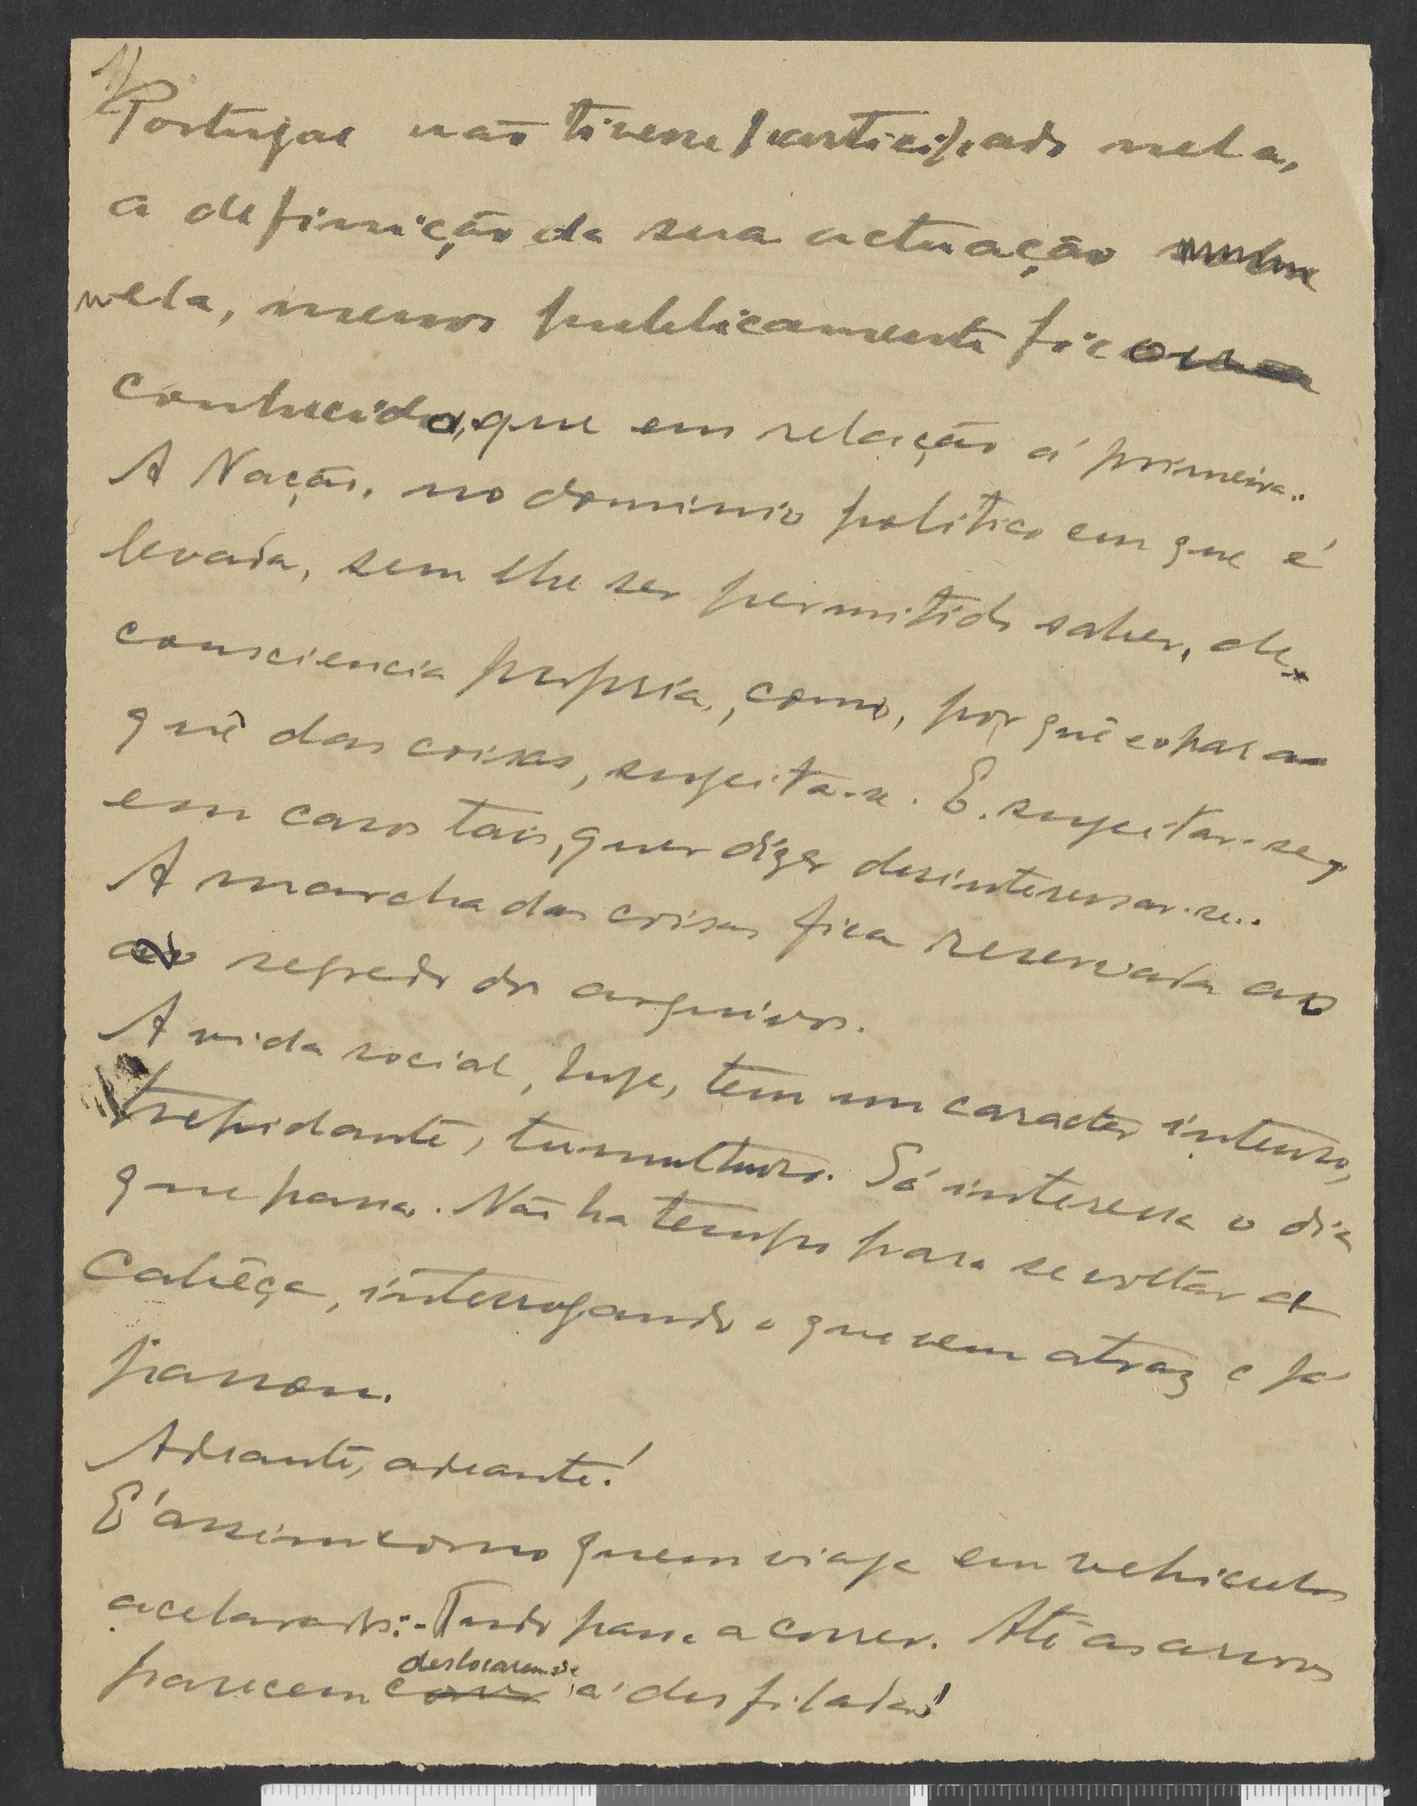 1)
Portugal não tivesse participado nela,
a definição da sua actuação
nela, menos publicamente fic
conhecida, que em relação á primeira..
A Nação, no dominio politico em que é
levada, sem lhe ser permitido saber, de
consciencia propria, como, por quê e para
quê das coisas, sujeita-se. E sujeitar-se,
em casos tais, quer dizer desinteressar-se..
A marcha das coisas fica reservada ao
ao segredo dos arquivos.
A vida social, hoje, tem um caracter intenso,
trepidante, tumultuoso. Só interessa o dia
que passa. Não ha tempo para se voltar a
cabêça, interrogando o que vem atraz e já
passou.
Adeante, adeante!
E' assim como quem viaja em vehiculos
acelarados:-Tudo passa a correr. Até as arvores
parecem deslocarem-se á desfilada!